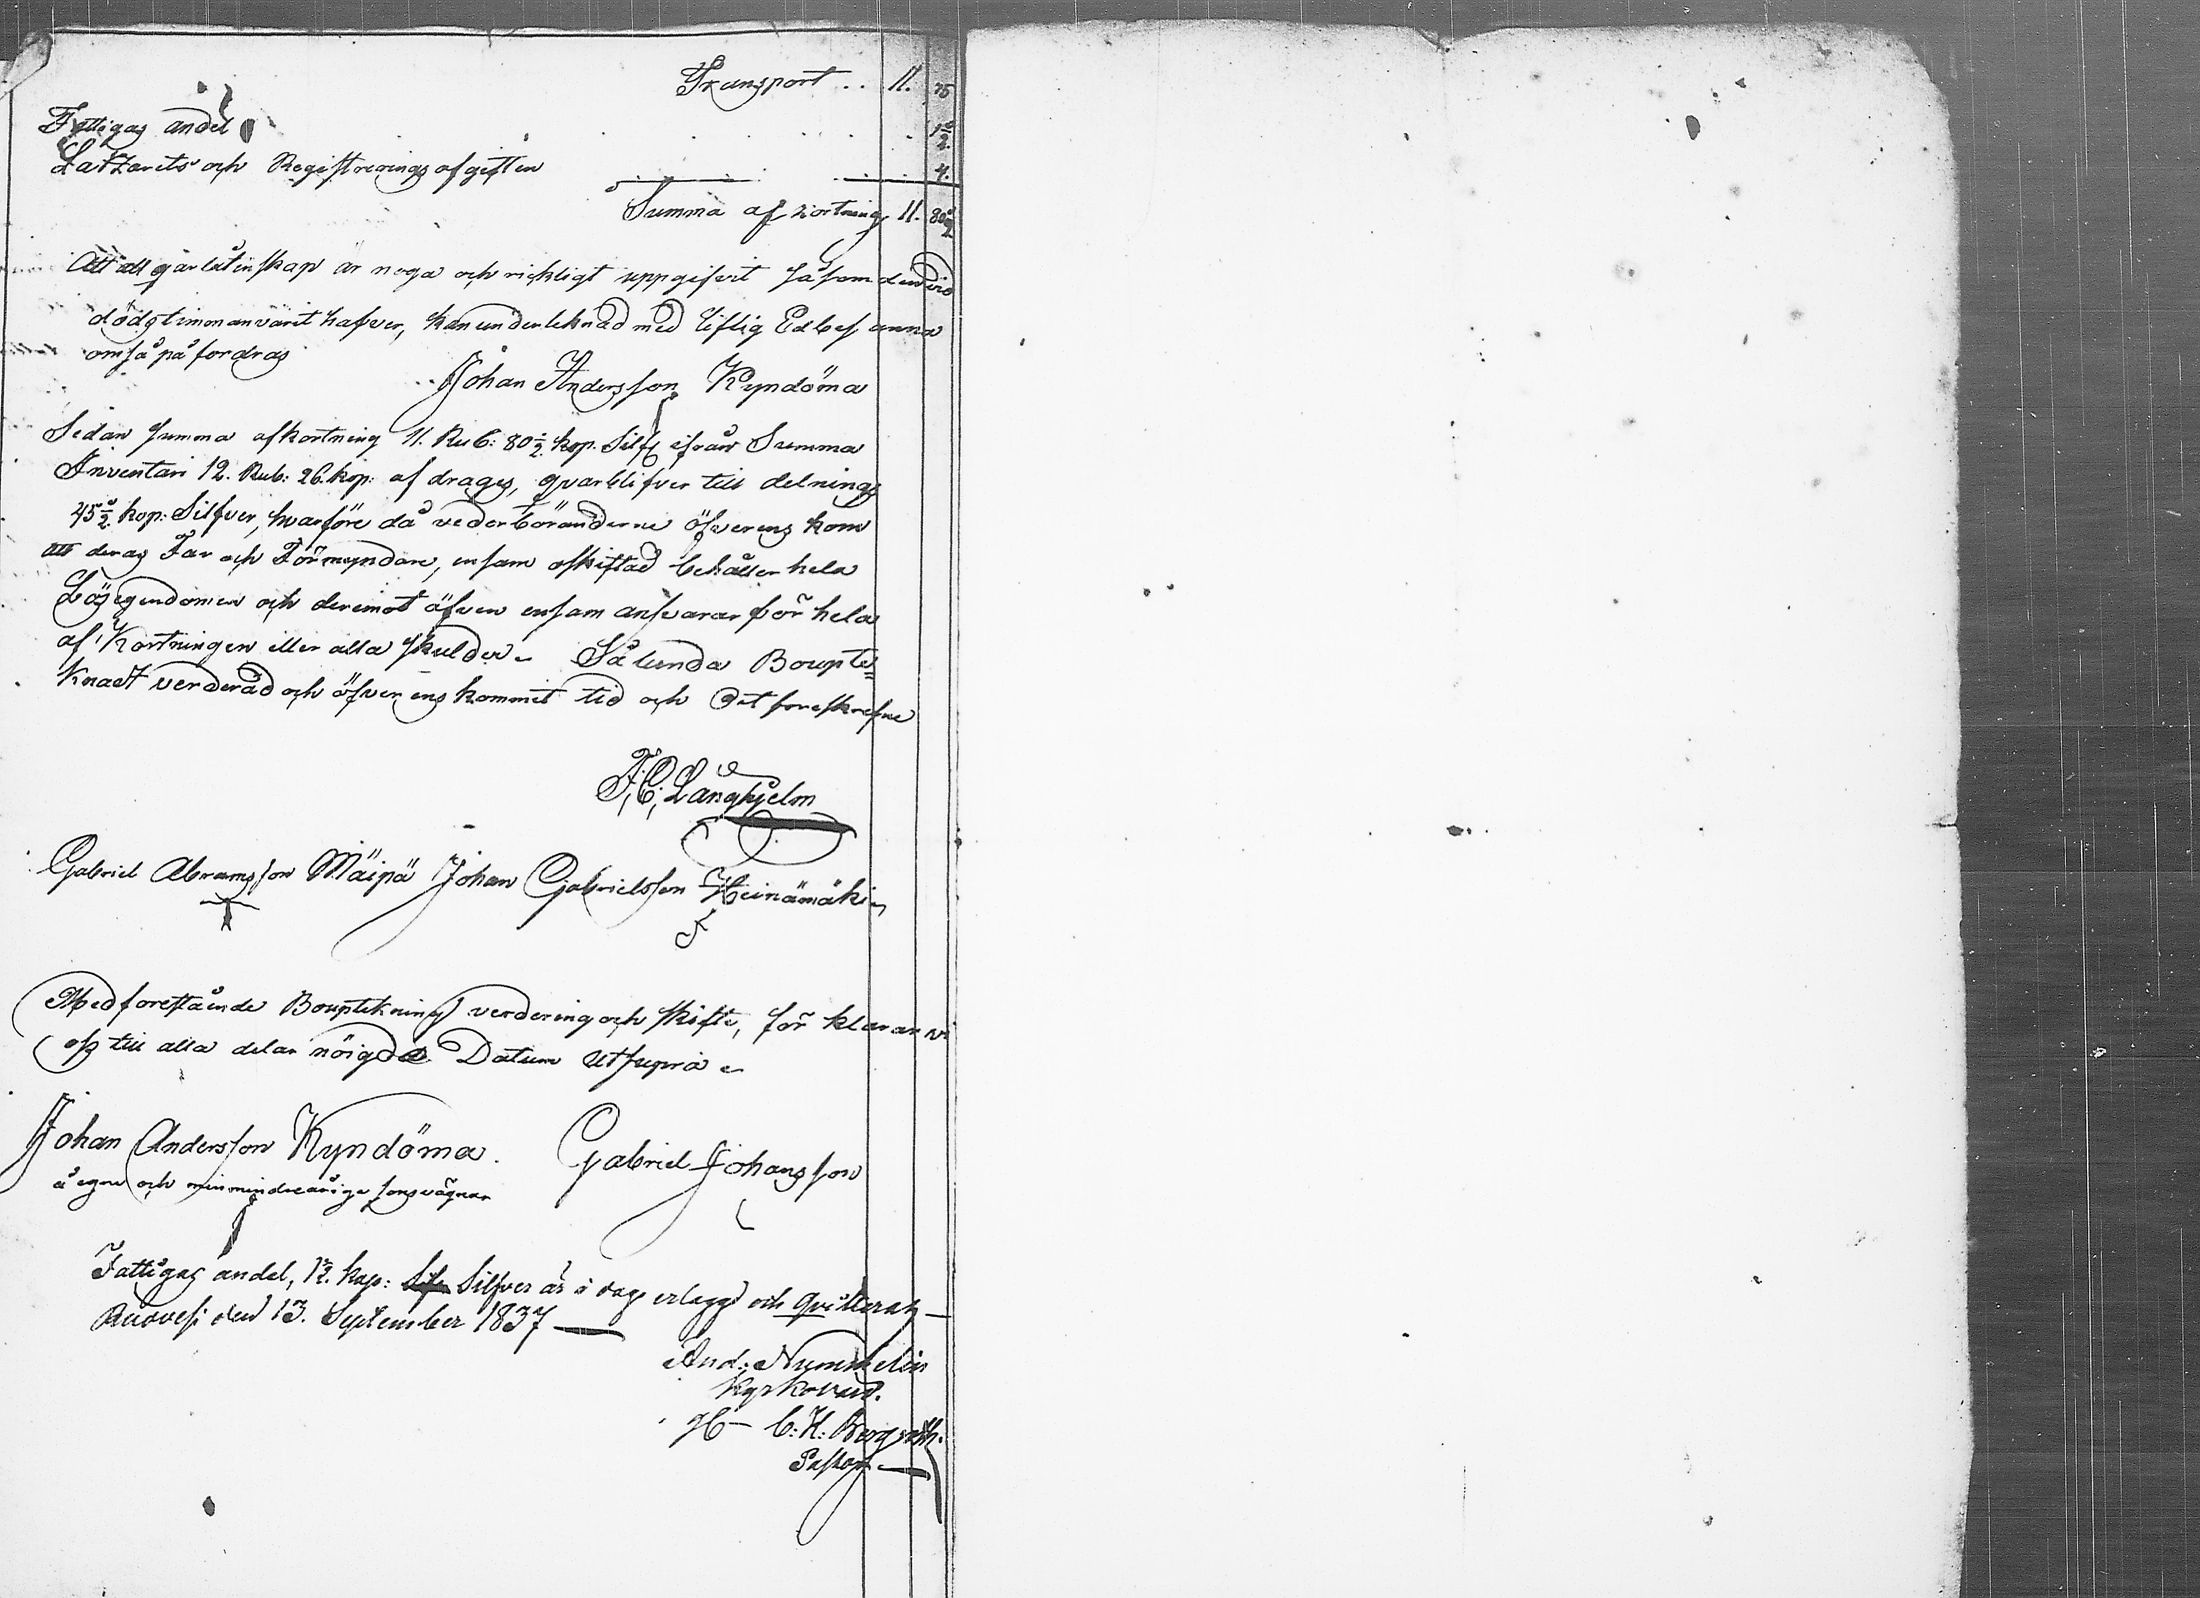 Transport . . 11. 75
Fattigas andel 1 1/2
Latzarets och Registrerings afgiften 4.
Summa afkortning 11. 80 1/2
Att all qvarlåtinskap är noga och richligt uppgifvit såsom den vid
dödstimman varit hafver, kan underteknad med liflig Ed
om så påfordras
Johan Andersson Kyndöma
Sedan summa afkortning 11. Rub: 80 1/2 kop. Silf ifrån Summa
Inventari 12. Rub: 26. kop: afdrages, qvarblifver till delnings
45 1/2 kop: Silfver, hvarföre då vederböranderne öfverens kom
att deras Far och Förmyndare, ensam oskiftad behåller hela
Lösegendomen och deremot äfven ensam ansvarar för hela
af Kortningen eller alla skulder. Sålunda Boupte=
knadt verderad och öfverenskommit tid och Ort foreskrefne
F. C. Långhjelm
Gabriel Abramsson Mäipä Johan Gabrielsson Heinämäki
Med forestående Bouptekning verdering och skifte, för klarar vi
oss till alla delar nöigde. Datum Utsupra
Johan Andersson Kyndöma. Gabriel Johansson
å egne och min mindreåriga sons vägnar
Fattigas andel, 1 1/2. kop: Silfver är i dag erlagd och qvitteras
Ruovesi den 13. September 1837
And: Nummelin
Kyrkovärd.
C: H: Bergroth.
Pastor